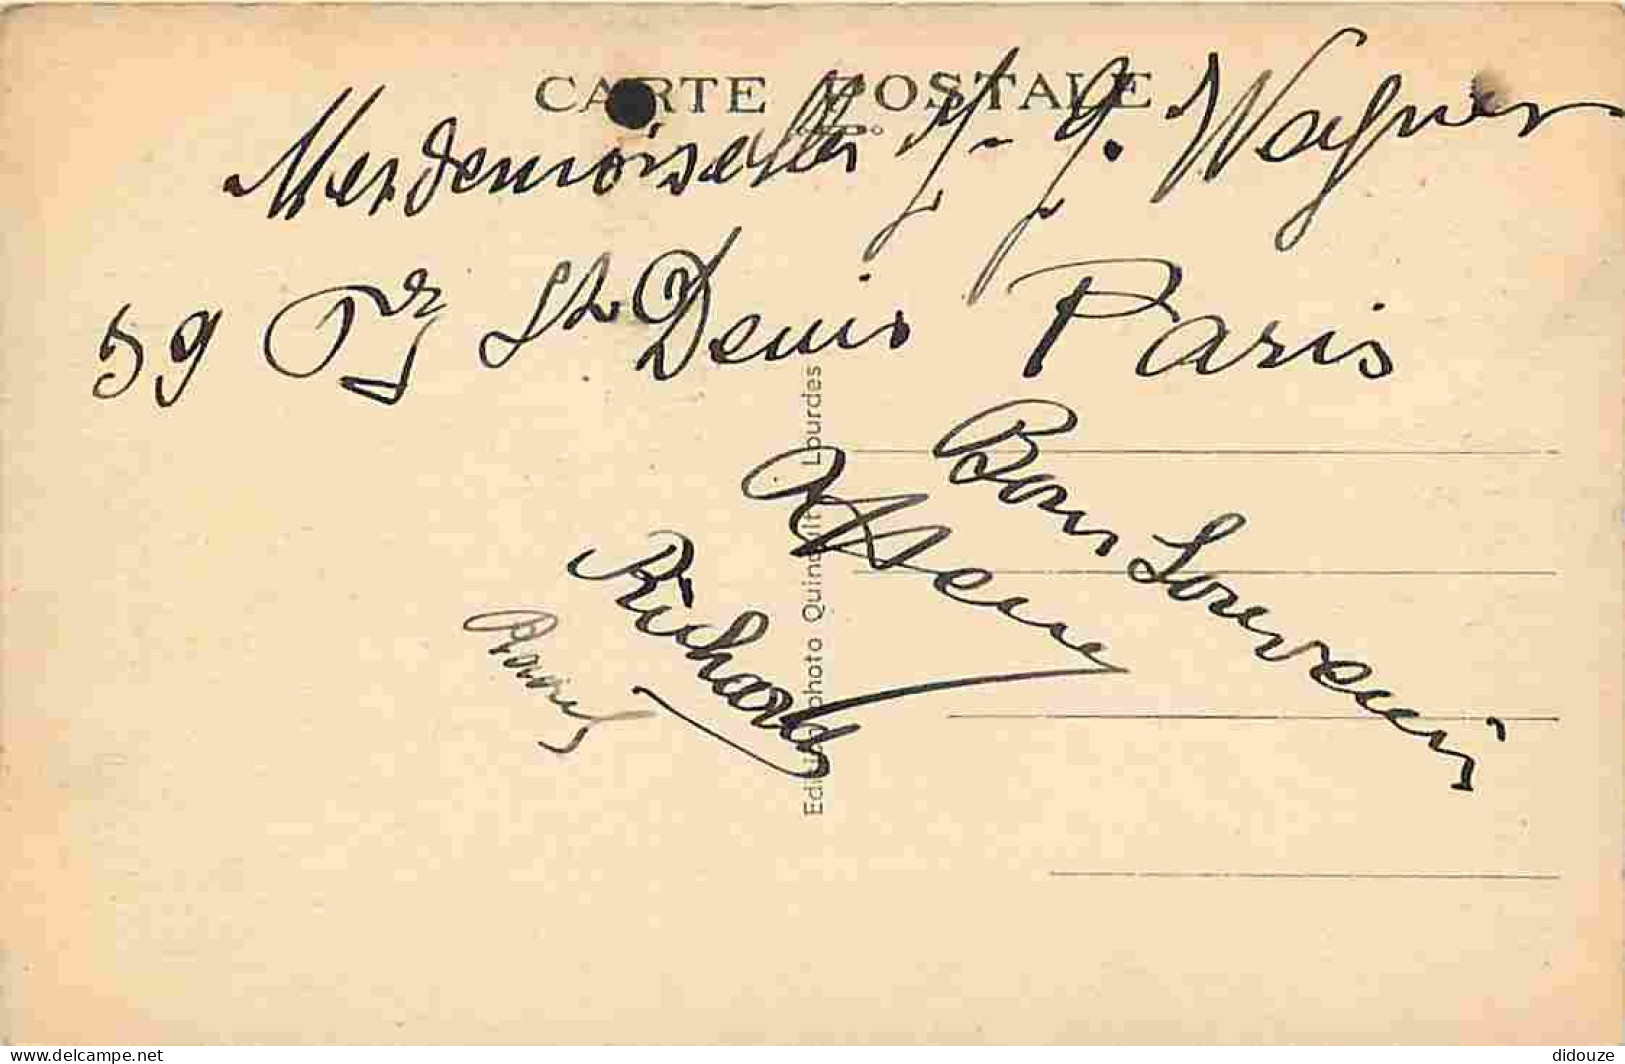 CARTE POSTALE
Mesdemoiselles J. J. Wagner
59 Fg St Denis Paris
Bon Souvenir
Richard
Edition photo Quinault Lourdes
www.delcampe.net
didouze